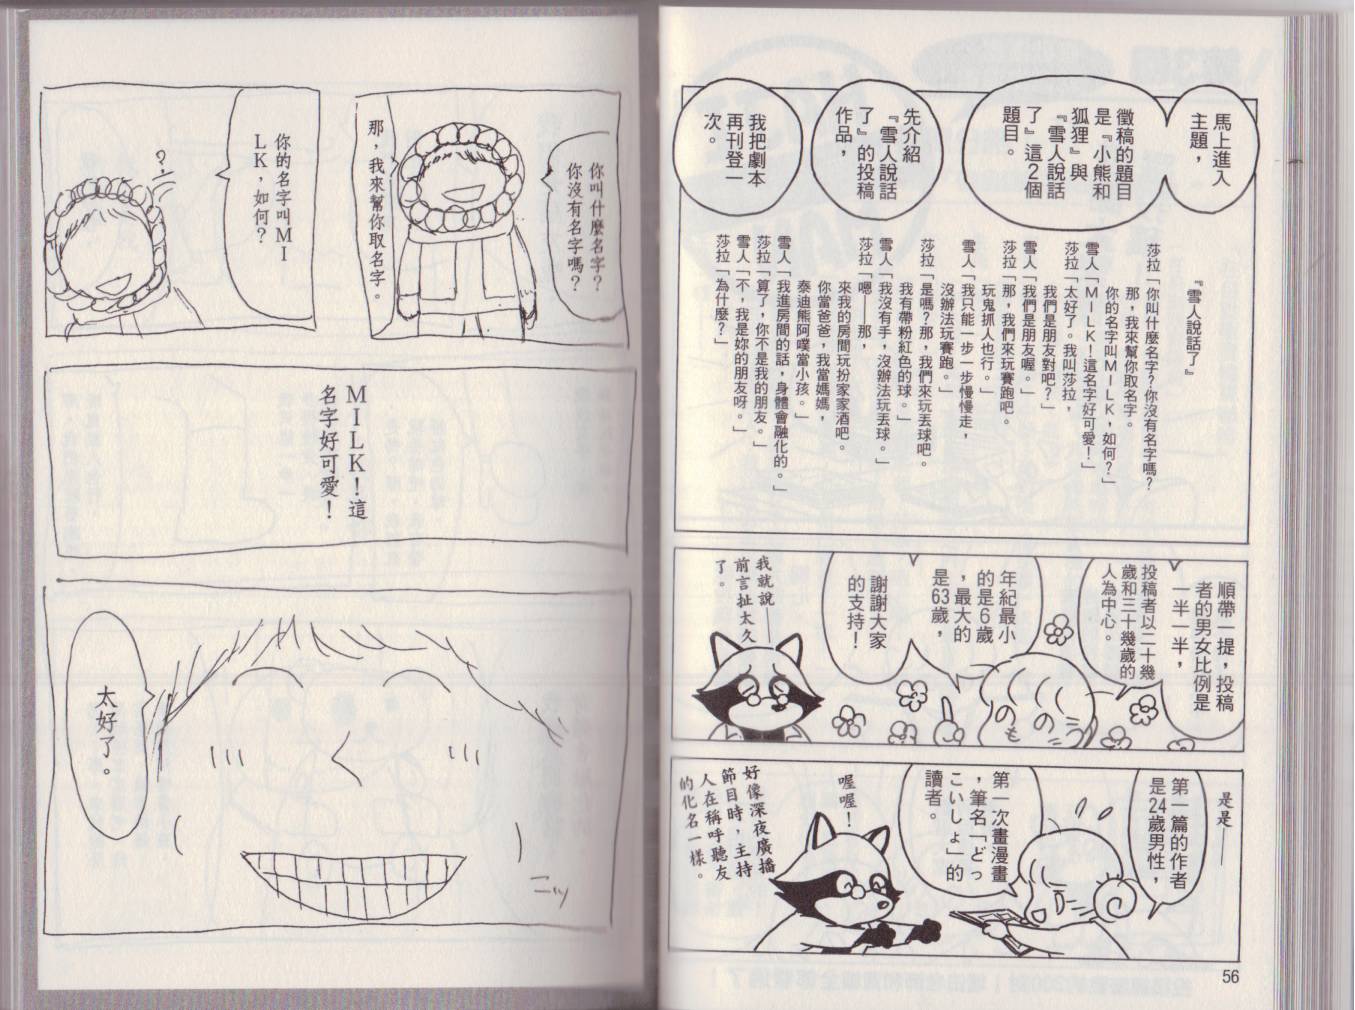 馬上進入
主題，
徵稿的題目
是『小熊和
狐狸』與
『雪人說話
了』這2個
題目。
先介紹
『雪人說話
了』的投稿
作品，
我把劇本
再刊登一
次。
『雪人說話了』
莎拉「你叫什麼名字？你沒有名字嗎？
那，我來幫你取名字。
你的名字叫ＭＩＬＫ，如何？」
雪人「ＭＩＬＫ！這名字好可愛！」
莎拉「太好了。我叫莎拉，
我們是朋友對吧？」
雪人「我們是朋友喔。」
莎拉「那，我們來玩賽跑吧。
玩鬼抓人也行。」
雪人「我只能一步一步慢慢走，
沒辦法玩賽跑。」
莎拉「是嗎？那，我們來玩丟球吧。
我有帶粉紅色的球。」
雪人「我沒有手，沒辦法玩丟球。」
莎拉「嗯——那，
來我的房間玩扮家家酒吧。
你當爸爸，我當媽媽，
泰迪熊阿噗當小孩。」
雪人「我進房間的話，身體會融化的。」
莎拉「算了，你不是我的朋友。」
雪人「不，我是妳的朋友呀。」
莎拉「為什麼？」
順帶一提，投稿
者的男女比例是
一半一半，
投稿者以二十幾
歲和三十幾歲的
人為中心。
年紀最小
的是6歲
，最大的
是63歲，
謝謝大家
的支持！
のものの
我就說——
前言扯太久
了。
是是——
第一篇的作者
是24歲男性，
第一次畫漫畫
，筆名「どっ
こいしょ」的
讀者。
喔喔！
好像深夜廣播
節目時，主持
人在稱呼聽友
的化名一樣。
56
你叫什麼名字？
你沒有名字嗎？
那，我來幫你取名字。
你的名字叫ＭＩ
ＬＫ，如何？
？
ＭＩＬＫ！這
名字好可愛！
太好了。
ニッ